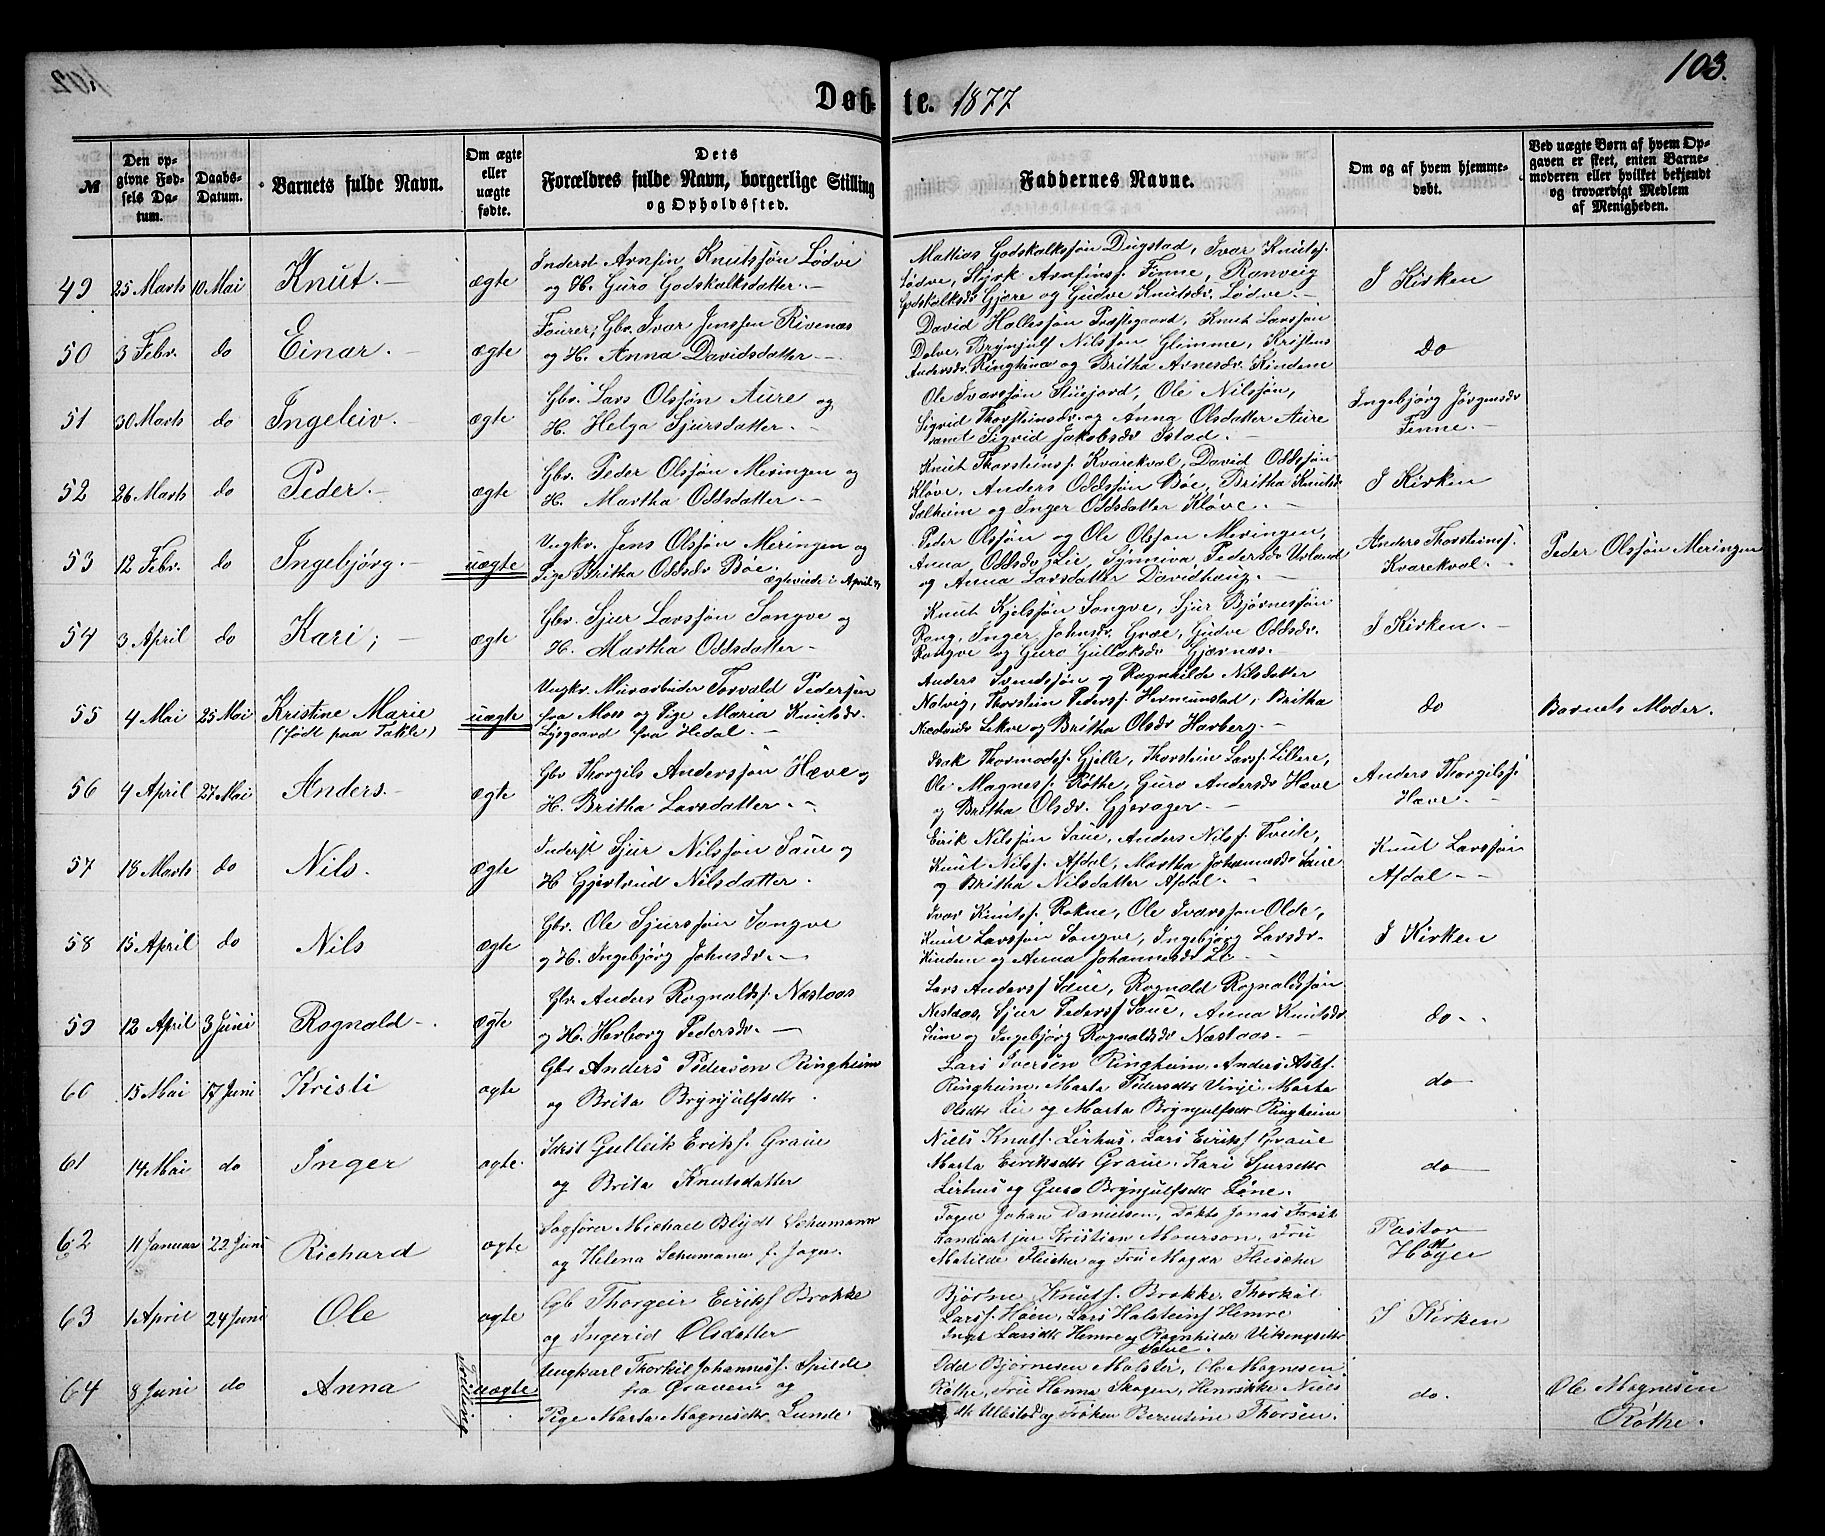 103.
Døbte. 1877
№
Den opgivne Fødsels Datum.
Daabs-Datum.
Barnets fulde Navn.
Om ægte eller uægte fødte.
Dets Forældres fulde Navn, borgerlige Stilling og Opholdssted.
Faddernes Navne.
Om og af hvem hjemmedøbt.
Ved uægte Børn af hvem Opgaven er skeet, enten Barnemoderen eller hvilket bekjendt og troværdigt Medlem af Menigheden.
49 25 Marts 10 Mai Knut. ægte
Inderst Arnfin Knutssøn Lødve
og H. Guro Godskalksdatter.
Mathias Godskalkssøn Dugstad, Ivar Knutsf.
Lødve, Styrk Arnfinsf. Finne, Ranveig
Godskalksdr Gjøre og Gudve Knutsdr. Lødve.
I Kirken
50 3 Febr. do Einar. ægte
Fourer, Gbr. Ivar Jenssen Rivenæs
og H. Anna Davidsdatter
David Hallessøn Præstegaard, Knut Larssøn
Dolve, Brynjulf Nilssøn Glimme, Kristens
Andersdr. Ringheim og Britha Arnesdr. Kindem
do
51 30 Marts do Ingeleiv. ægte
Gbr. Lars Olssøn Aure og
H. Helga Sjursdatter.
Ole Ivarssøn Stuejord, Ole Nilssøn,
Sigrid Thorsteinsdr. og Anna Olsdatter Aure
samt Sigrid Jakobsdr Istad.
Ingebjørg Jørgensdr
Finne.
52 26 Marts do Peder. ægte
Gbr. Peder Olssøn Meringen og
H. Martha Oddsdatter
Knut Thorsteinsf. Kvarekval, David Oddssøn
Kløve, Anders Oddssøn Bøe, Britha Knutsdr
Sælheim og Inger Oddsdatter Kløve.
I Kirken
53 12 Febr. do Ingebjørg. uægte
Ungkr. Jens Olssøn Meringen og
Pige Britha Oddsdr Bøe.
ægteviede i April
Peder Olssøn og Ole Olssøn Meringen,
Anna Oddsdr Lie, Synniva Pedersdr
og Anna Larsdatter Davidhaug.
Anders Thorsteinsf.
Kvarekval.
Peder Olssøn Meringen
54 3 April do Kari; ægte
Gbr. Sjur Larssøn Songve og
H. Martha Oddsdatter
Knut Kjelssøn Songve, Sjur Bjørnessøn
Rong, Inger Johnsdr. Græe, Gudve Oddsdr.
Rongve og Guro Gullaksdr Gjærnæs.
I Kirken.
55 4 Mai 25 Mai Kristine Marie uægte
(født paa Takle)
Ungkr. Murarbeider Torvald Pedersen
fra Moss og Pige Maria Knutsdr.
Lysgaard fra Hedal.
Anders Svendssøn og Ragnhilde Nilsdatter
Nolvig, Thorstein Pedersf. Hermunstad, Britha
Lekve og Britha Olsdr Havberg.
do
Barnets Moder.
56 4 April 27 Mai Anders. ægte
Gbr Thorgils Anderssøn Hæve og
H. Britha Larsdatter.
Isak Thormodsf. Gjelle, Thorstein Larsf. Lillere,
Ole Magnesf. Røthe, Guro Andersdr Hæve
og Britha Olsdr. Gjerager.
Anders Thorgilsf.
Hæve.
57 18 Marts do Nils. ægte
Inderst Sjur Nilssøn Saue og
H Gjertrud Nilsdatter.
Eirik Nilssøn Saue, Anders Nilsf. Tveite,
Knut Nilsf. Afdal, Martha Johannesdr Saue
og Britha Nilsdatter Afdal.
Knut Larssøn
Afdal
58 15 April do Nils ægte
Gbr. Ole Sjurssøn Songve
og H. Ingebjørg Johnsdr.
Ivar Knutsf. Rokne, Ole Ivarssøn Olde,
Knut Larssøn Songve, Ingebjørg Larsdr.
Kindem og Anna Johannesdr Li.
I Kirken
59 12 April 3 Juni Rognald ægte
Gbr Anders Rognaldsf. Næstaas
og H. Herborg Pedersdr.
Lars Andersf Saue, Rognald Rognaldssøn
Nestaas, Sjur Pedersf Saue, Anna Knutsdr
Saue og Ingebjørg Rognaldsdr Næstaas.
do.
60 15 Mai 17 Juni Kristi ægte
Gbr Anders Pedersen Ringheim
og Brita Brynjulfsdtr.
Lars Iversen Ringheim, Anders Aslesf.
Ringheim, Marta Pedersdtr Vinje, Marta
Olsdtr Lie og Marta Brynjulfsdtr Ringheim
do
61 14 Mai do Inger ægte.
Idrst Gulleik Eriksf. Graue
og Brita Knutsdatter
Niels Knutsf. Lirhus, Lars Eiriksf Graue
Marta Eiriksdtr Graue, Kari Sjursdtr
Lirhus og Guro Brynjulfsdtr Løne.
do
62 11 Januar 22 Juni Richard ægte
Sagfører Michael Blydt Schumann
og Helena Schumann f. Fogn.
Foged Johan Danielsen, Dokto Jonas Forst
Candidat jur Kristian Mourson, Fru
Matilde Fleicher og Fru Magda Fleischer
Pastor
Høyer
63 1 April 24 Juni Ole ægte
Gb Thorgeir Eiriksf Brekke
og Ingerid Olsdatter
Bjørne Knutsf. Brekke, Thorkil
Larsf. Høen, Lars Halsteinsf Hemre
Inger Larsdtr Hemre og Ragnhilde Vikingsdtr
Saue.
I Kirken
64 8 Juni do Anna Tvilling uægte
Ungkarl Thorkil Johannesf. Spilde
fra Graven og
Pige Marta Magnesdtr. Lunde
Odd Bjørnesen Mølster, Ole Magnesen
Røthe, Fru Hanna Skogen, Henrikke Niels
dtr Ullestad og Frøken Berentine Thorsen.
do.
Ole Magnesen
Røthe.